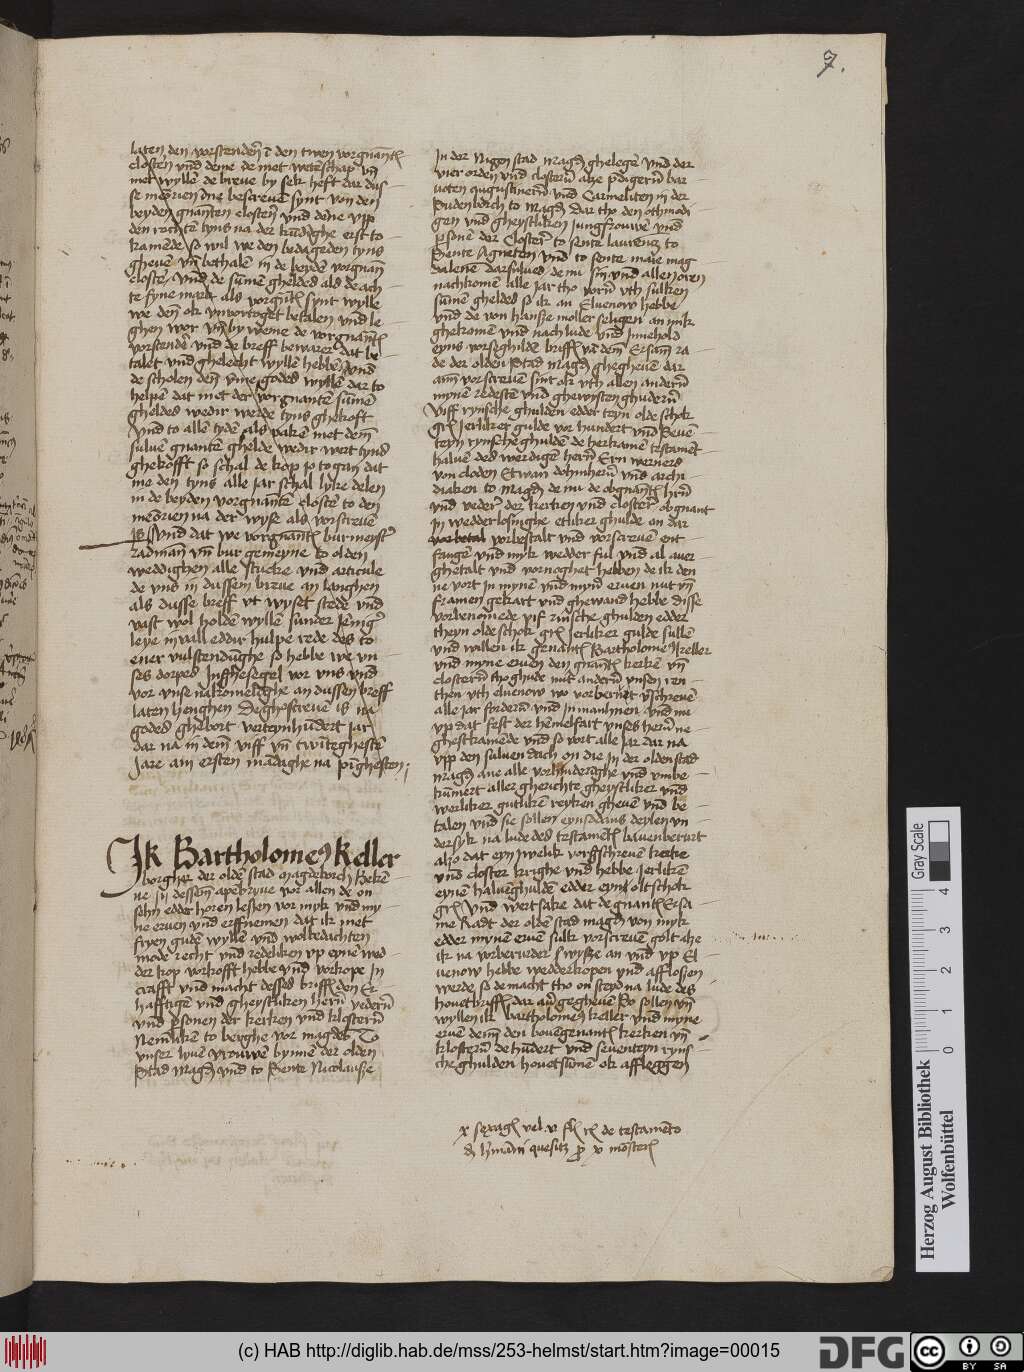 7.
laten den vorstenden̄ ī den twen vorgnāntꝭ
closteñ vnd deme de met wetēschap vn̄
met wyllē de breue by sek heft dar dus
se meōrien īne bescreuē synt von den
beyden gnānten closteñ vnd dene vpp
den rechte tyns na der kūdighe erst to
kamēde so wil we den bedageden tyns
gheuē vn̄ bethalē in de beydē vorgnan
closte vnd de sūmē gheldes als de ach
te fyne mark als vorgntꝭ synt wylle
we den ok vnvortoget betalen vnd le
ghen wor vn̄ by weme de vorgnāntꝭ
vorstendē vnd de breff bewarer dat be
talet vnd ghelecht wyllē hebbē vnd
de scholen deñ vmē godes wyllē dar to
helpē dat met der vorgnantē sūmē
gheldes wedir werde tyns ghekoft
vnd to allē tydē als vaken met dem̄
suluē gnantē ghelde wedir wert tyns
ghekofft so schal de kop jo togan dat
me den tyns alle jar schal lyke delen
in de beyden vorgnantē closte to den
meōrien na der wyse als vorscreuē
is vnd dat we vorgnantꝭ burmeyst
radman vn̄ bur gemeyne to olden
weddighen alle stucke vnd articule
de vns in dussem breue an langhen
als dusse breff vt wyset stede vnd
vast wol holdē wyllē sunder jenig
leye inval eddir hulpe rede des to
ener vulstendūghe so hebbe we vn
ses dorpes Inghesegel vor vns vnd
vor vnse nakomelīghe an dussen breff
laten henghen De ghescreuē is na
godes ghebort verteynhūdert jar
dar na in dem viff vn̄ twīteghestē
jare am ersten māndaghe na pīghesten
Ik Bartholomeꝰ Keller
borgher der oldē stad magdeborch Bekē
ne in dessem apēbryue vor allen de on
sehn edder horen lesen vor myk vnd my
ne eruen vnd erffnemen dat ik met
fryen gudē wyllē vnd wolbedachten
mode recht vnd redeliken vp eynē wed
der kop vorkofft hebbe vnd vorkope In
crafft vnd macht desses briffꝭ den Er
hafftigē vnd gheystliken herñ vedern
vnd psonen der kerken vnd klostern
Nemlikē to berghe vor magdeb To
vnser lyuē vrouwē bynnē der olden
Stad Magdꝭ vnd to Sente Nicolausse
In der Nigen stad Magdꝭ gheleghē vnd der
vier orden vnd closterñ alze pdigerñ bar
uoten augustinerñ vnd Carmeliten in der
Sudenborch to Magdꝭ Dar tho den othmodi
gen vnd gheystliken jungfrouwē vnd
psonē der Closter to sente laurenz to
Sente Agneten vnd to sente marie mag
dalene darsulues de nu syn vnd allen oren
nachkomēn alle jar tho vorñ vth sulken
sūmē gheldes so ik an Eluenow hebbe
vnd de von hansze moller seligen an myk
ghekomen vnd nach lude vnd Innehold
eyns vorseghilde briffꝭ vā dem Ersam̄ ra
de der olden Stad Magdꝭ ghegheuē dar
am̄ vorscreuē sint ok vth allen andern
mynē redestē vnd ghewysten ghudern
viff rynsche ghulden edder teyn olde schok
grꝭ Jerliker gulde vor hundert vnd Seuē
teyn rynsche ghuldē de herkamē testamēt
haluē des werdigen herñ Ern werners
von cloden Etwan domherñ vnd archi
diaken to Magdꝭ de nu de obgnantꝭ hrñ
vnd veder der kerken vnd closter obgnant
In wedderlosinghe etliker ghulde an dar
vorbetal vorbestalt vnd vorscreuē ent
fangē vnd myk wedder ful vnd al auer
ghetalt vnd vornoghet hebben de ik den
ne vort in mynē vnd mynr eruen nut vn̄
framen gekart vnd ghewand hebbe disse
vorbenomede vif rinsche ghulden edder
theyn olde schok grꝭ Jerliker gulde sullē
vnd willen ik genantꝭ Bartholomeꝰ Keller
vnd myne eruen den gnantꝭ kerkē vn̄
closterñ tho ghude mit andern vnsen ren
then vth eluenow wo vorberurt vscreuē
alle jar fordern vnd jn manhnen vnd nu
vp dat fest der hemelfart vnses hern ne
ghestkamēde vnd so vort alle jar dar na
vpp den suluen dach on die in der olden stad
Magdꝭ ane alle vorhinderighe vnd vmbe
kumert aller gherichte gheystliker vnd
werliker gutlikē reyken gheuē vnd be
talen vnd sie sollen eynsodans deylen vn
der syk na lude des testamētꝭ bauenberurt
alzo dat eyn jwelik vorschreuē kerke
vnd closter krighe vnd hebbe jerlikē
eynē haluēghuldē edder eyn olt schok
grꝭ vnd wert sake dat de gnantꝭ Ersa
me Radt der olden stad magdꝭ von myk
edder mynē eruē sulk vorscreuē golt alze
ik na vorberurder swysze an vnd vp El
uenow hebbe wedderkopen vnd afflosen
werde so de macht tho on steyd na lude des
houetbriffꝭ dar auer gegheuē So sollen vn̄
wyllen ik bartholomeꝰ keller vnd myne
eruē denn den bouēgenantꝭ kerken vn̄
klostern de hūdert vnd seuenteyn ryns
che ghulden houetsūmē ok affleggen
x sexagꝭ vel v flꝭ rꝭ de testamēto
(c) HAB http://diglib.hab.de/mss/253-helmst/start.htm?image=00015
Herzog August Bibliothek
Wolfenbüttel
Gray Scale
0 1 2 3 4
DFG
cc BY SA